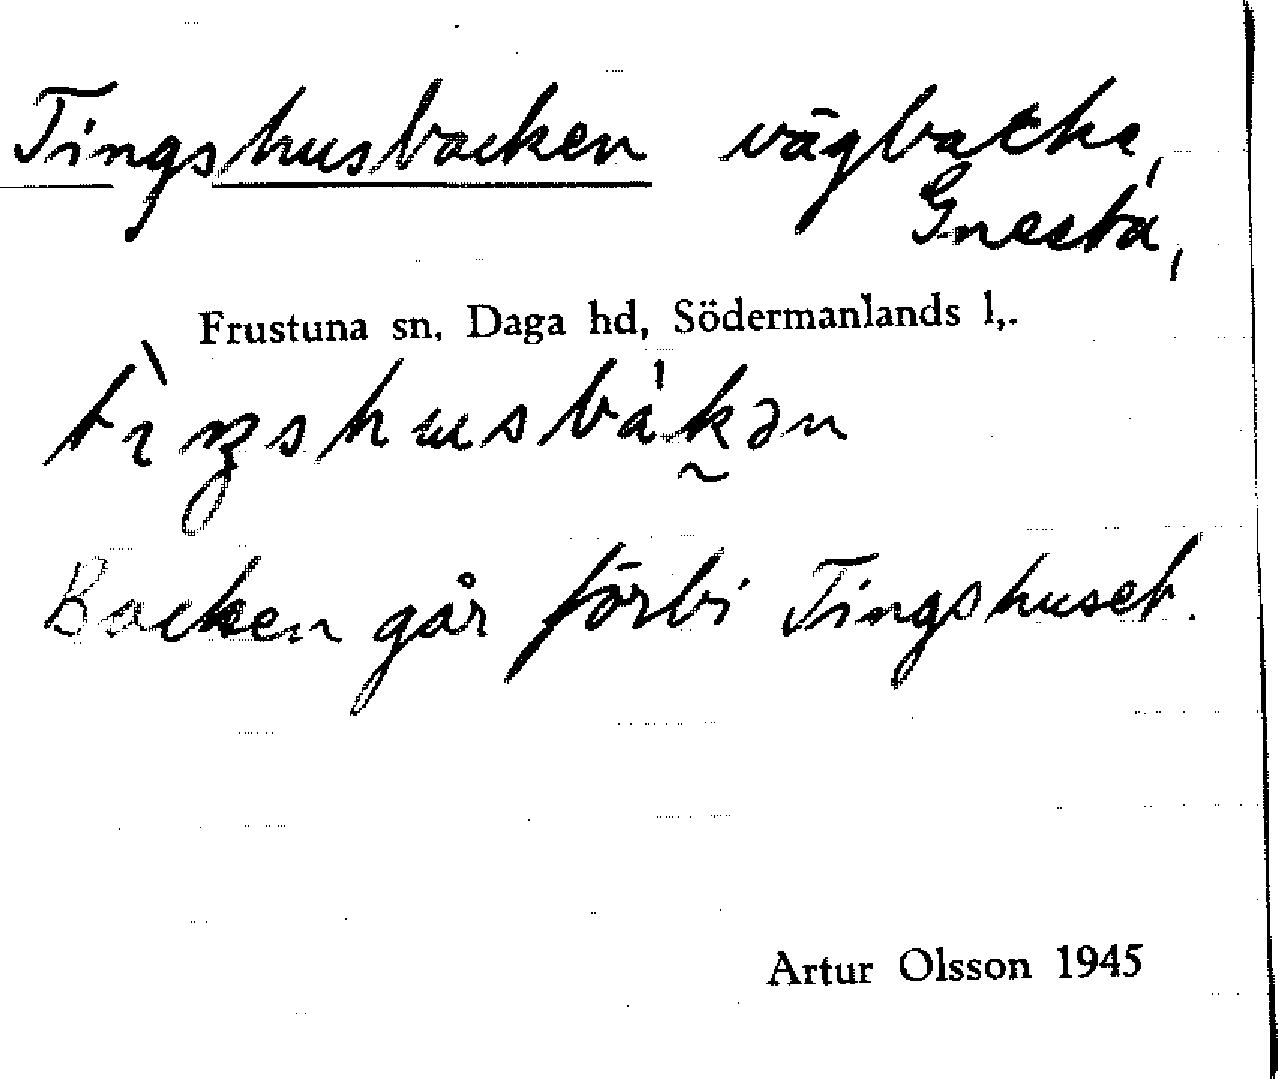 Tingshusbacken vägbacke,
Gnesta,
Frustuna sn, Daga hd, Södermanlands l,.
Backen går förbi Tingshuset.
Artur Olsson 1945